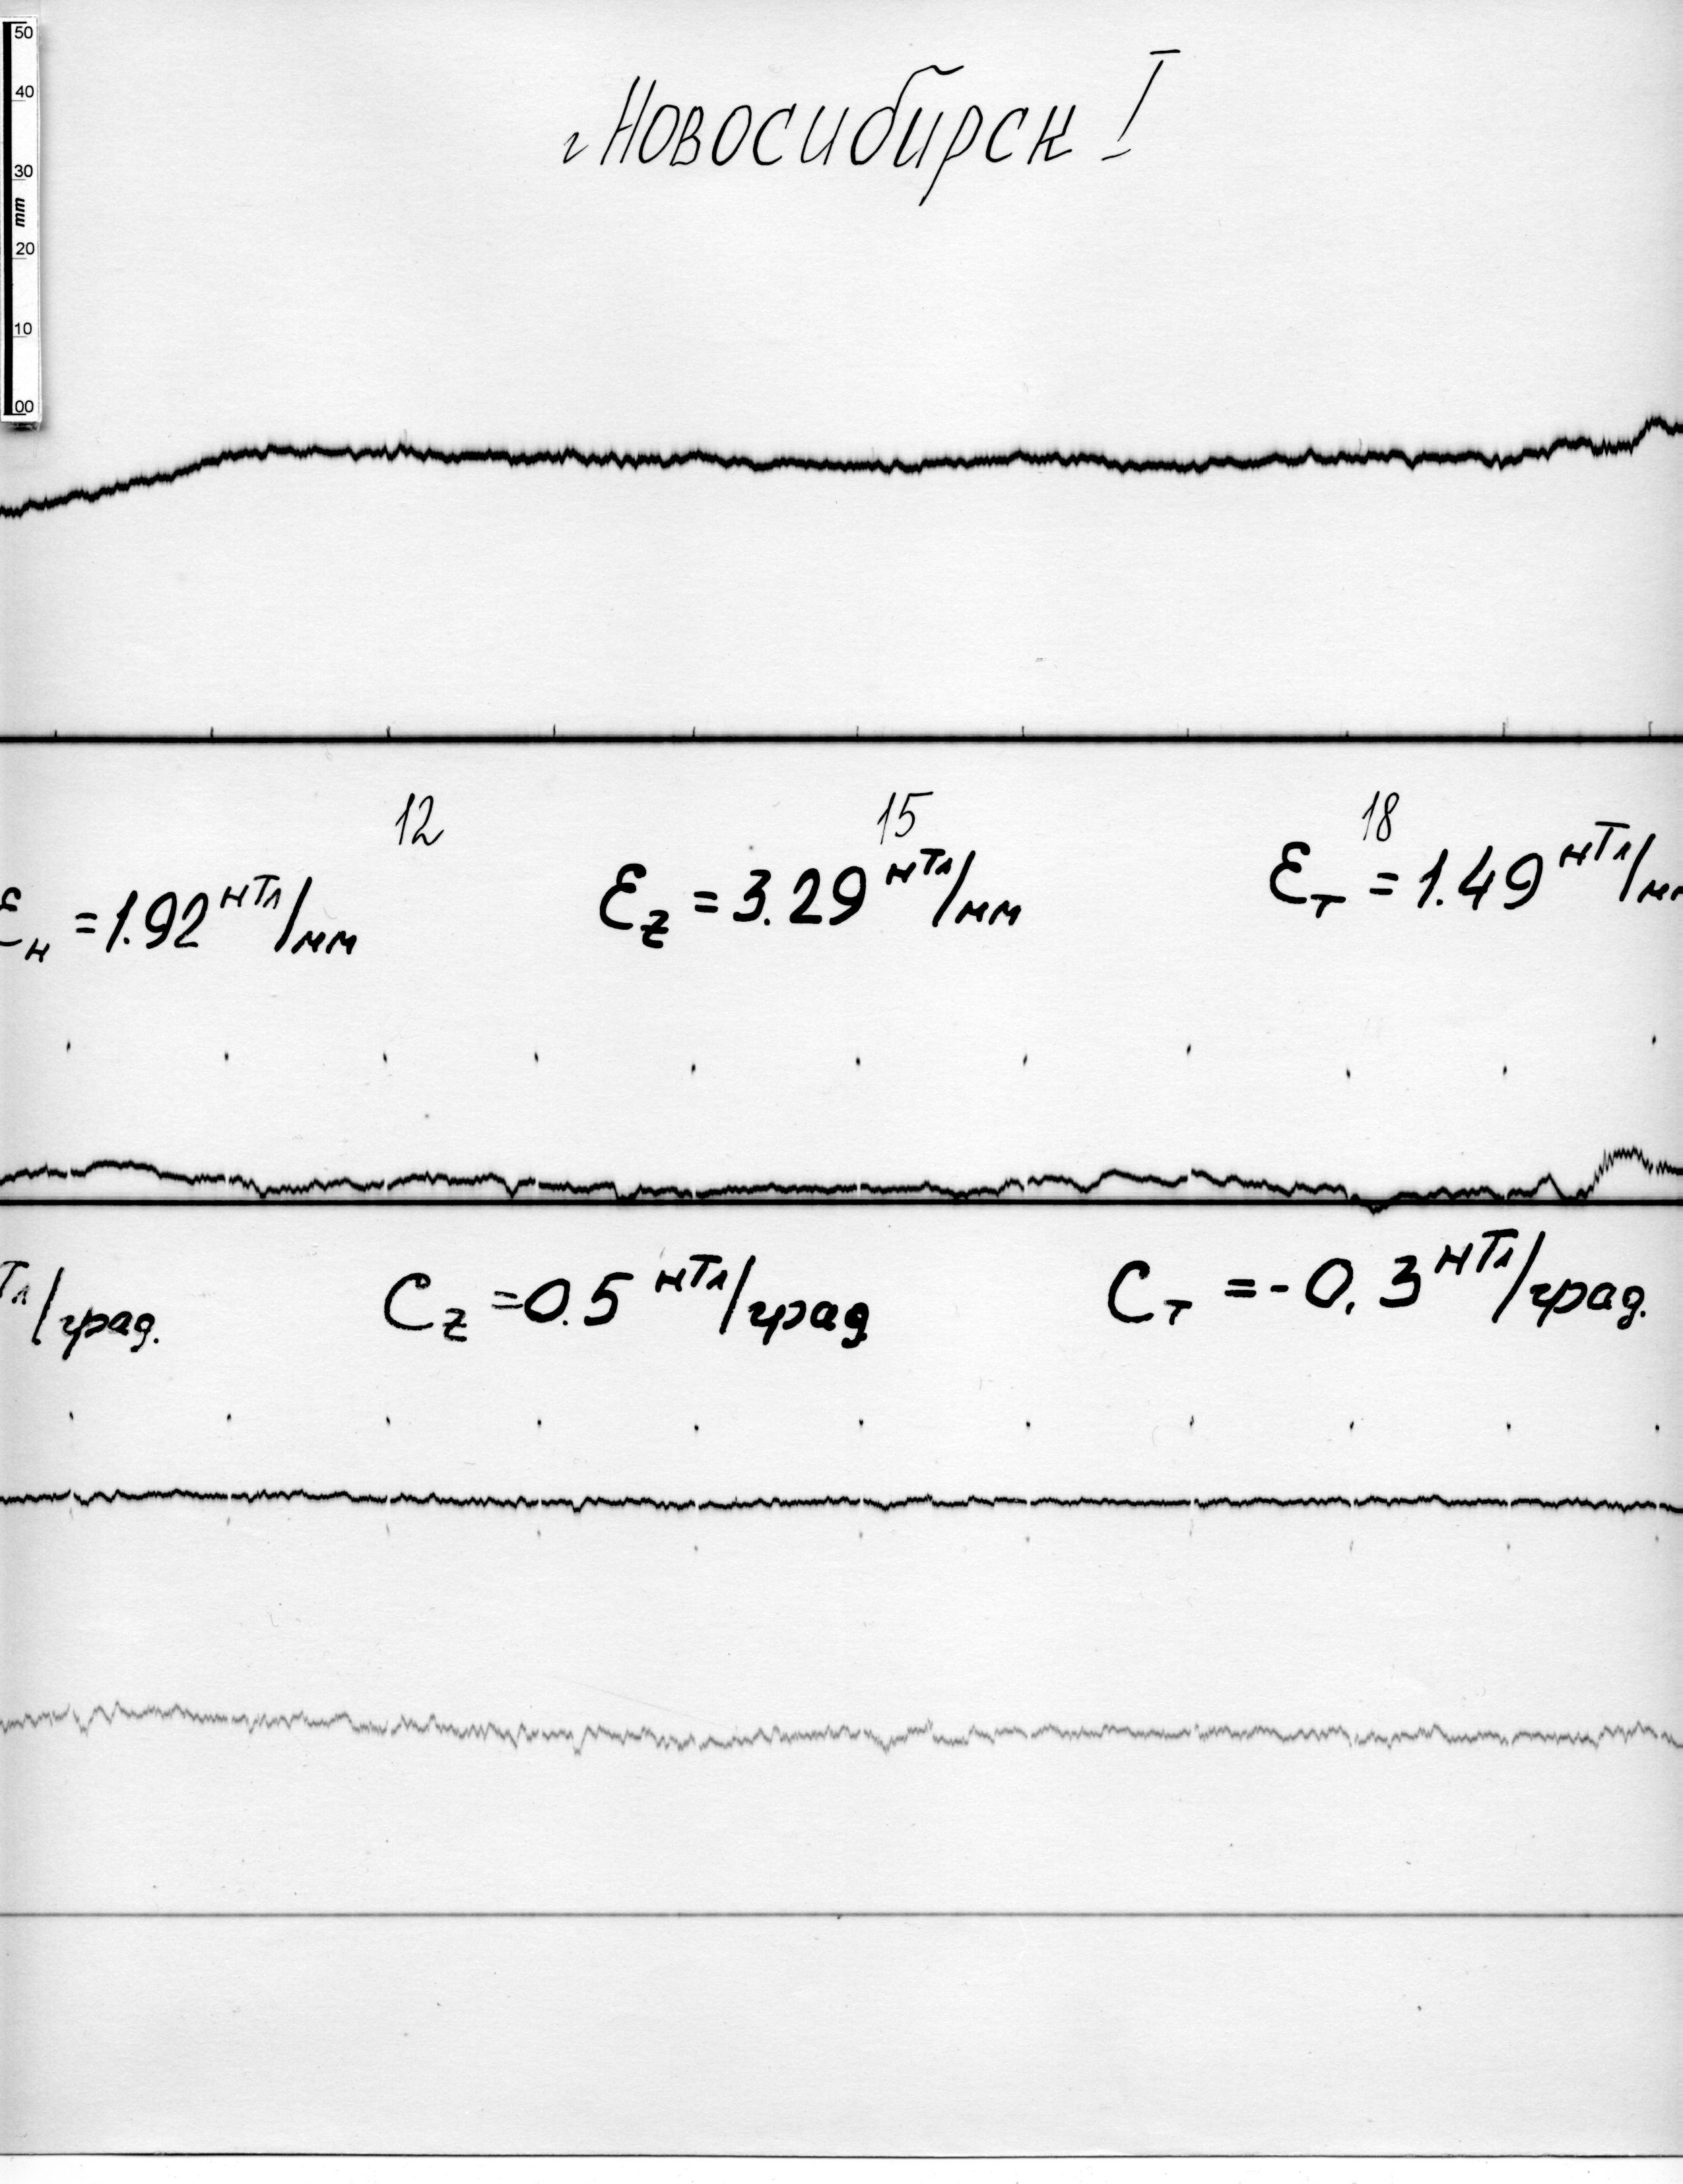 50
40
30
mm
20
10
00
г Новосибирск I
12 15 18
Ɛн = 1.92 нТл/мм Ɛz = 3.29 нТл/мм Ɛт = 1.49 нТл/мм
Тл/град. Cz = 0.5 нТл/град Cт = - 0.3 нТл/град.